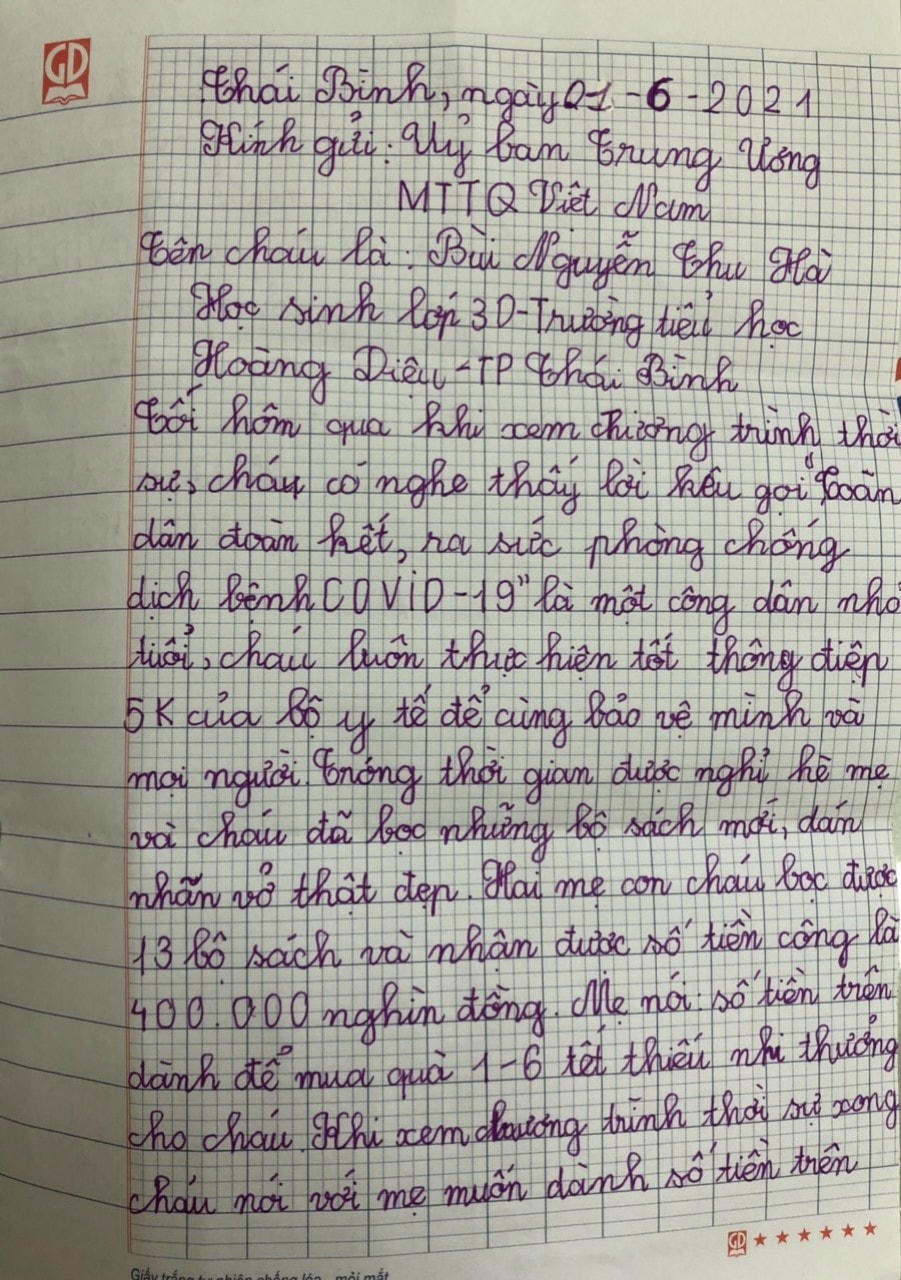 GD
Thái Bình, ngày 01-6-2021
Kính gửi: Uỷ ban Trung Ương
MTTQ Việt Nam
Tên cháu là: Bùi Nguyễn Thu Hà
Học sinh lớp 3D-Trường tiểu học
Hoàng Diệu-TP Thái Bình
Tối hôm qua khi xem chương trình thời
sự, cháu có nghe thấy lời kêu gọi "Toàn
dân đoàn kết, ra sức phòng chống
dịch bệnh COVID-19" là một công dân nhỏ
tuổi, cháu luôn thực hiện tốt thông điệp
5K của bộ y tế để cùng bảo vệ mình và
mọi người. Trong thời gian được nghỉ hè mẹ
và cháu đã bọc những bộ sách mới, dán
nhãn vở thật đẹp. Hai mẹ con cháu bọc được
13 bộ sách và nhận được số tiền công là
400.000 nghìn đồng. Mẹ nói: số tiền trên
dành để mua quà 1-6 tết thiếu nhi thưởng
cho cháu. Khi xem chương trình thời sự xong
cháu nói với mẹ muốn dành số tiền trên
GD
Giấy trắng tự nhiên chống lóa mỏi mắt